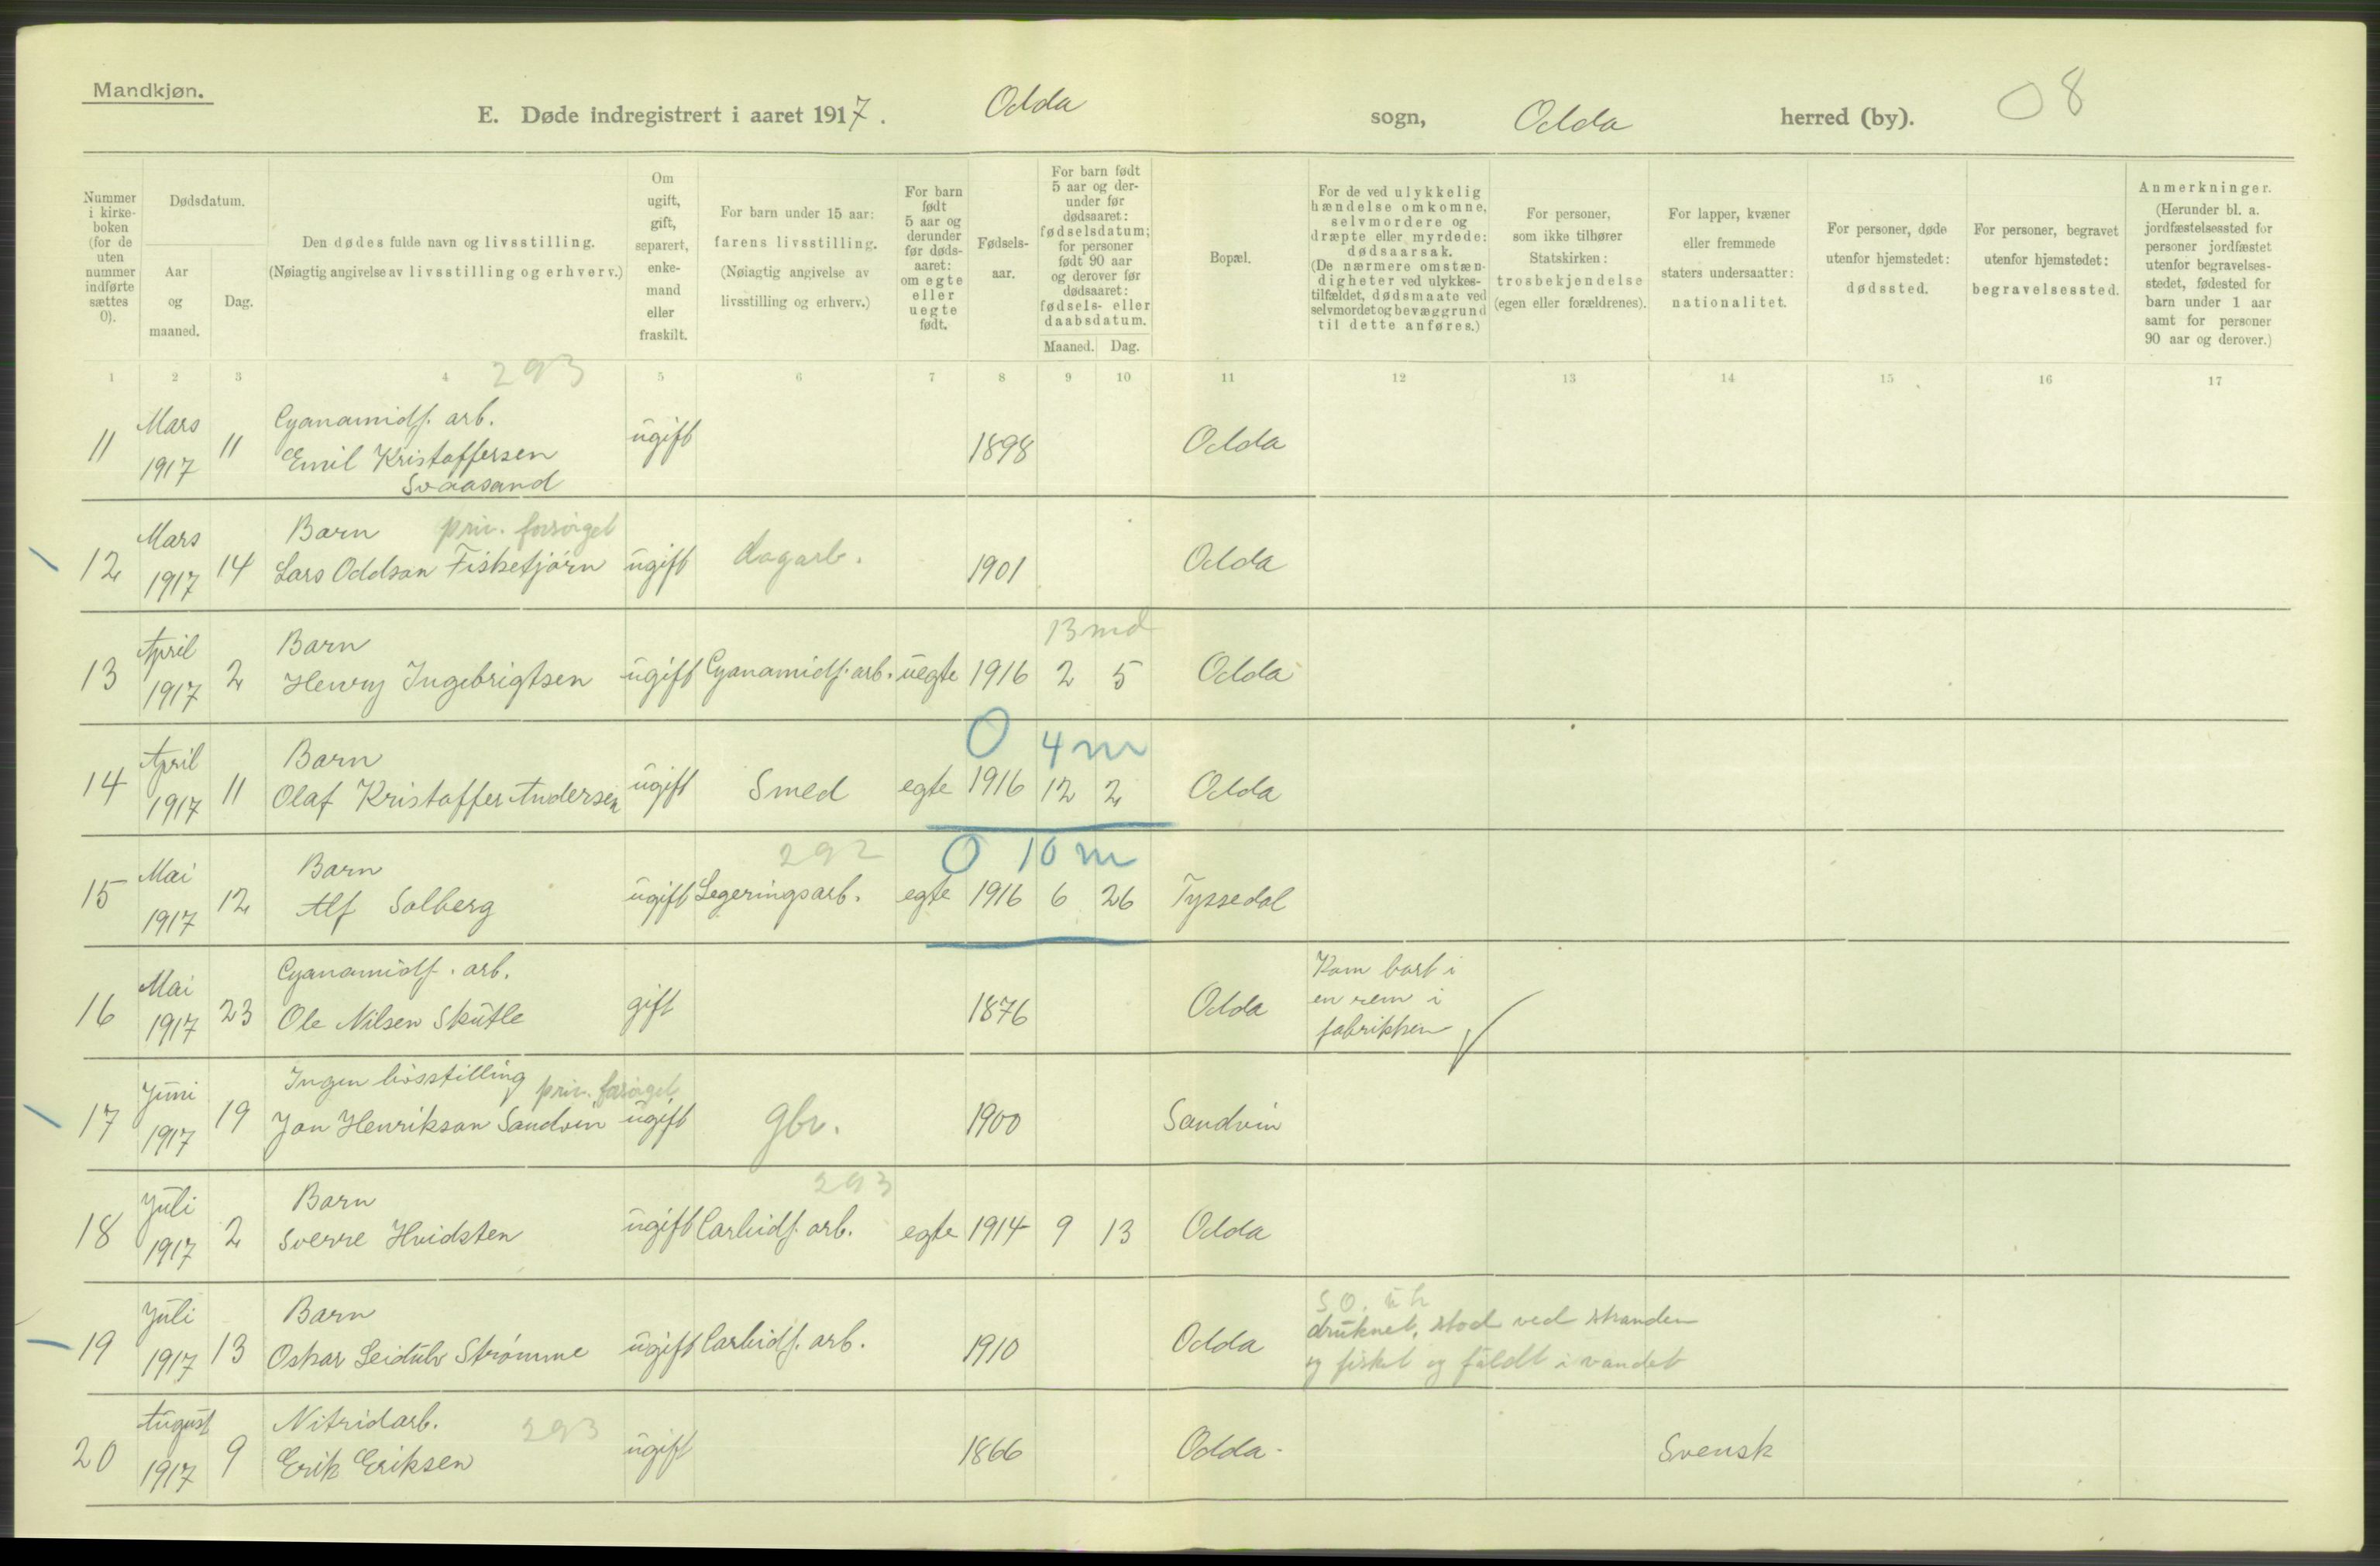 Mandkjøn.
E. Døde indregistrert i aaret 1917. Odda sogn, Odda herred (by). 08
Nummer i kirke-boken (for de uten nummer indførte sættes 0).
Dødsdatum.
Aar og maaned.
Dag.
Den dødes fulde navn og livsstilling.
(Nøiagtig angivelse av livsstilling og erhverv.)
Om ugift, gift, separert, enke-mand eller fraskilt.
For barn under 15 aar: farens livsstilling.
(Nøiagtig angivelse av livsstilling og erhverv.)
For barn født 5 aar og derunder før døds-aaret: om egte eller uegte født.
Fødsels-aar.
For barn født 5 aar og der-under før dødsaaret: fødselsdatum; for personer født 90 aar og derover før dødsaaret: fødsels- eller daabsdatum.
Maaned. Dag.
Bopæl.
For de ved ulykkelig hændelse omkomne, selvmordere og dræpte eller myrdede: dødsaarsak.
(De nærmere omstæn-digheter ved ulykkes-tilfældet, dødsmaate ved selvmordet og bevæggrund til dette anføres.)
For personer, som ikke tilhører Statskirken: trosbekjendelse (egen eller forældrenes).
For lapper, kvæner eller fremmede staters undersaatter: nationalitet.
For personer, døde utenfor hjemstedet: dødssted.
For personer, begravet utenfor hjemstedet: begravelsessted.
Anmerkninger.
(Herunder bl. a. jordfæstelsessted for personer jordfæstet utenfor begravelses-stedet, fødested for barn under 1 aar samt for personer 90 aar og derover.)
1 2 3 4 5 6 7 8 9 10 11 12 13 14 15 16 17
293
11 Mars 1917 11 Cyanamidf. arb. Emil Kristoffersen Svaasand ugift 1898 Odda
12 Mars 1917 14 Barn priv. forsørget Lars Oddson Fisketjørn ugift dagarb. 1901 Odda
13 md
13 April 1917 2 Barn Henry Ingebrigtsen ugift Cyanamidf. arb. uegte 1916 2 5 Odda
0 4 m
14 April 1917 11 Barn Olaf Kristoffer Andersen ugift Smed egte 1916 12 2 Odda
292 0 10 m
15 Mai 1917 12 Barn Alf Solberg ugift Legeringsarb. egte 1916 6 26 Tyssedal
16 Mai 1917 23 Cyanamidf. arb. Ole Nilsen Skutle gift 1876 Odda Kom bort i en rem i fabrikken
17 Juni 1917 19 Ingen livsstilling priv. forsørget Jon Henrikson Sandvin ugift gbr. 1900 Sandvin
293
18 Juli 1917 2 Barn Sverre Hvidsten ugift Carbidf. arb. egte 1914 9 13 Odda
19 Juli 1917 13 Barn Oskar Leidulv Strømme ugift Carbidf. arb. 1910 Odda druknet, stod ved stranden og fisket og faldt i vandet
20 August 1917 9 Nitridarb. 293 Erik Eriksen ugift 1866 Odda Svensk